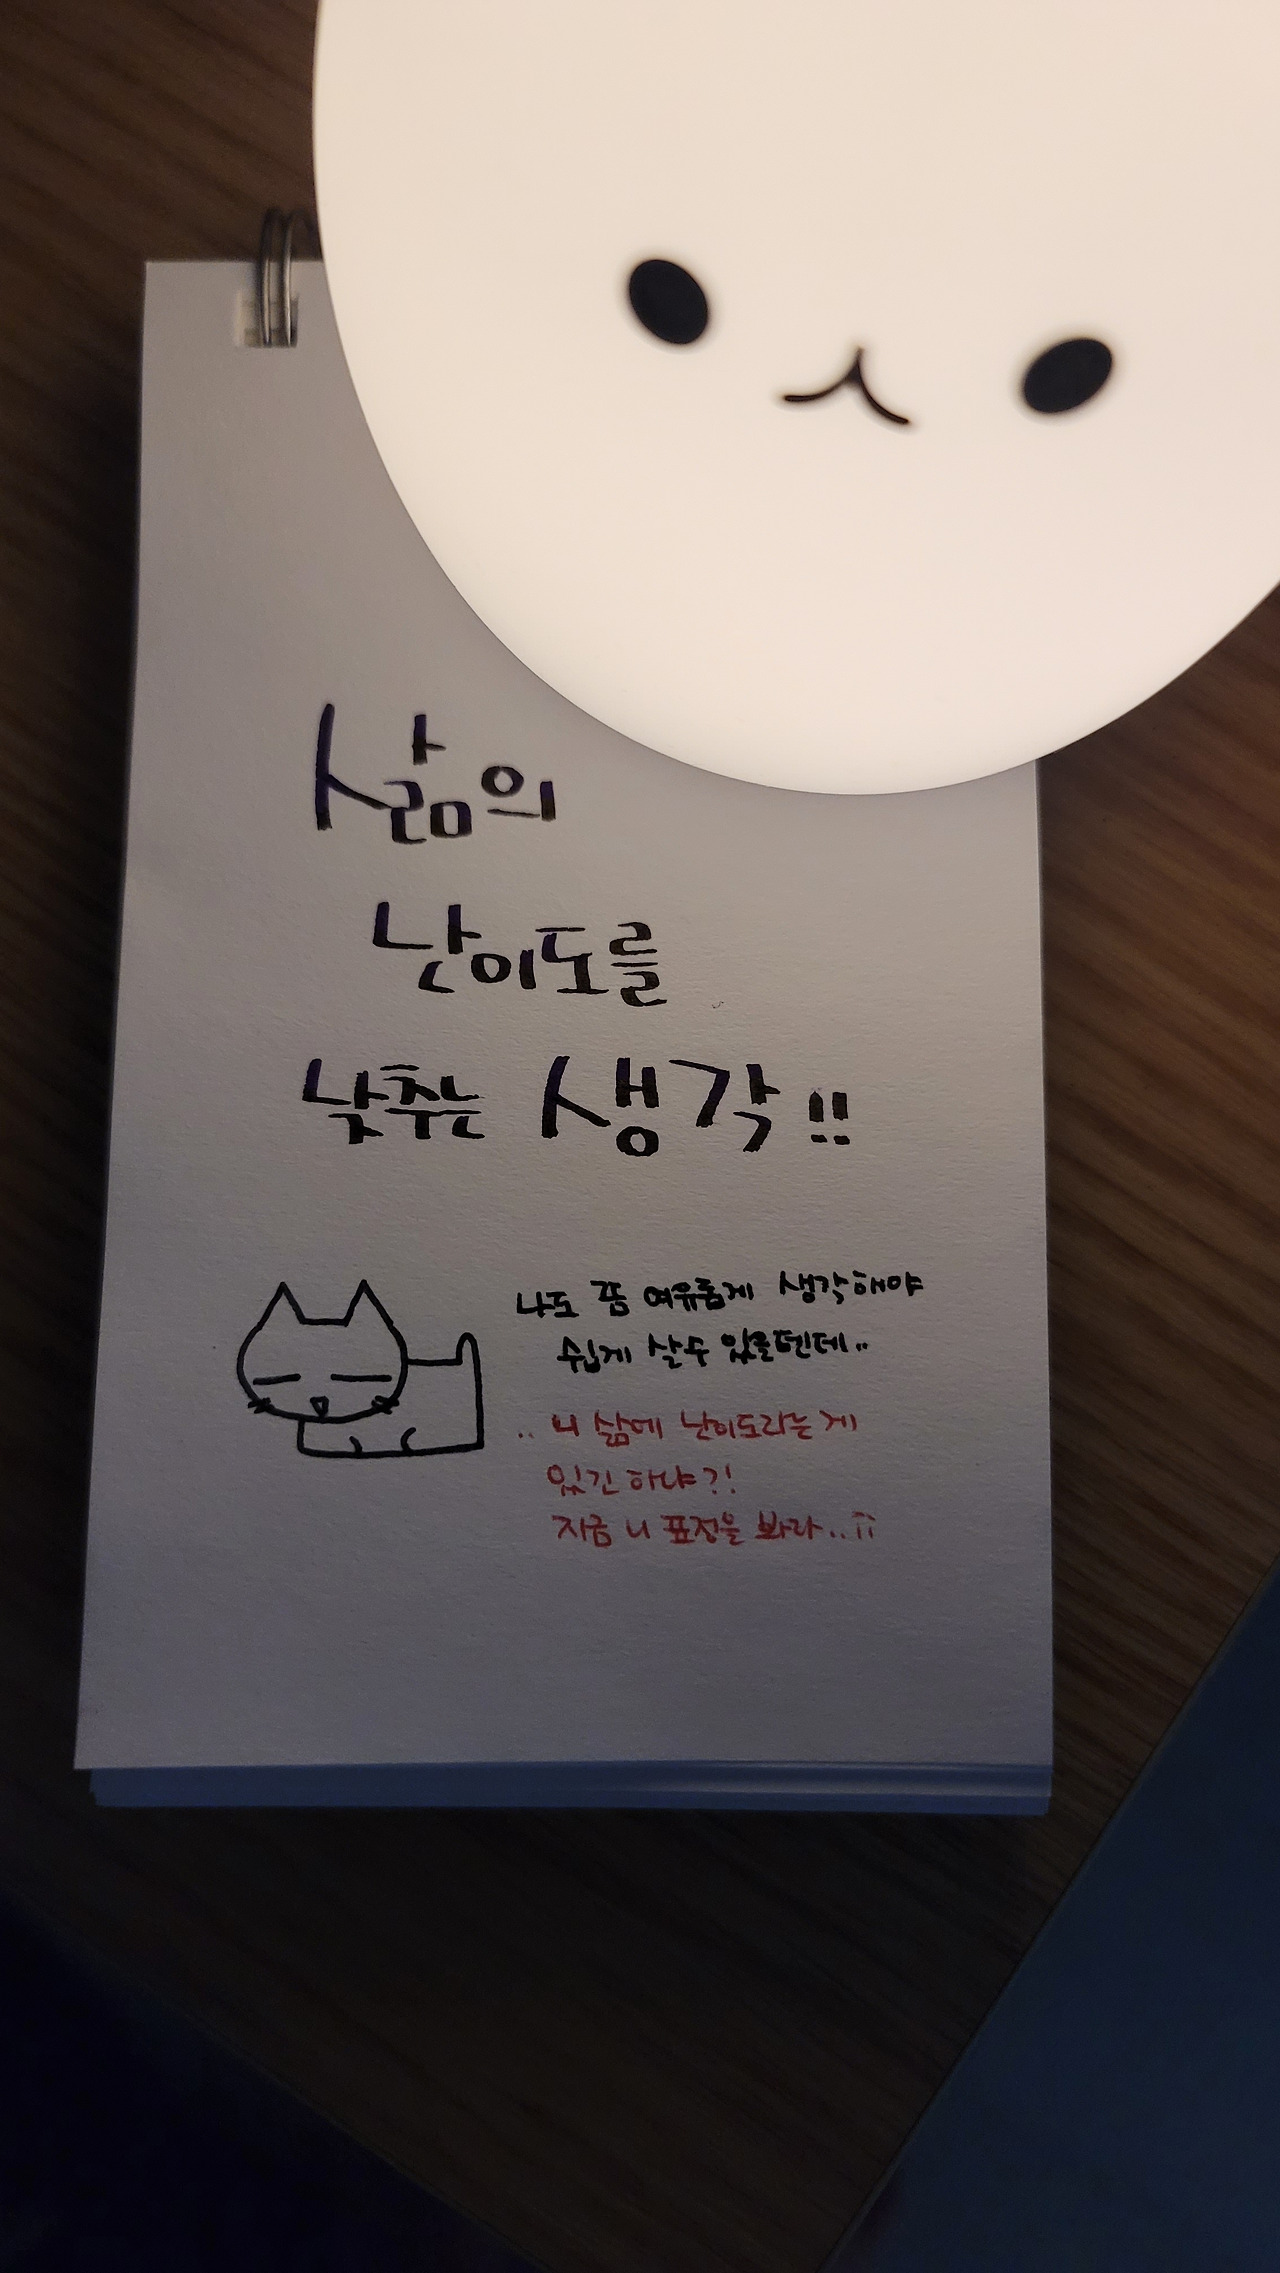 삶의
난이도를
낮추는 생각!!
나도 쫌 여유롭게 생각해야
쉽게 살수 있을텐데..
.. 니 삶에 난이도라는게
있긴 하냐?!
지금 니 표정을 봐라..